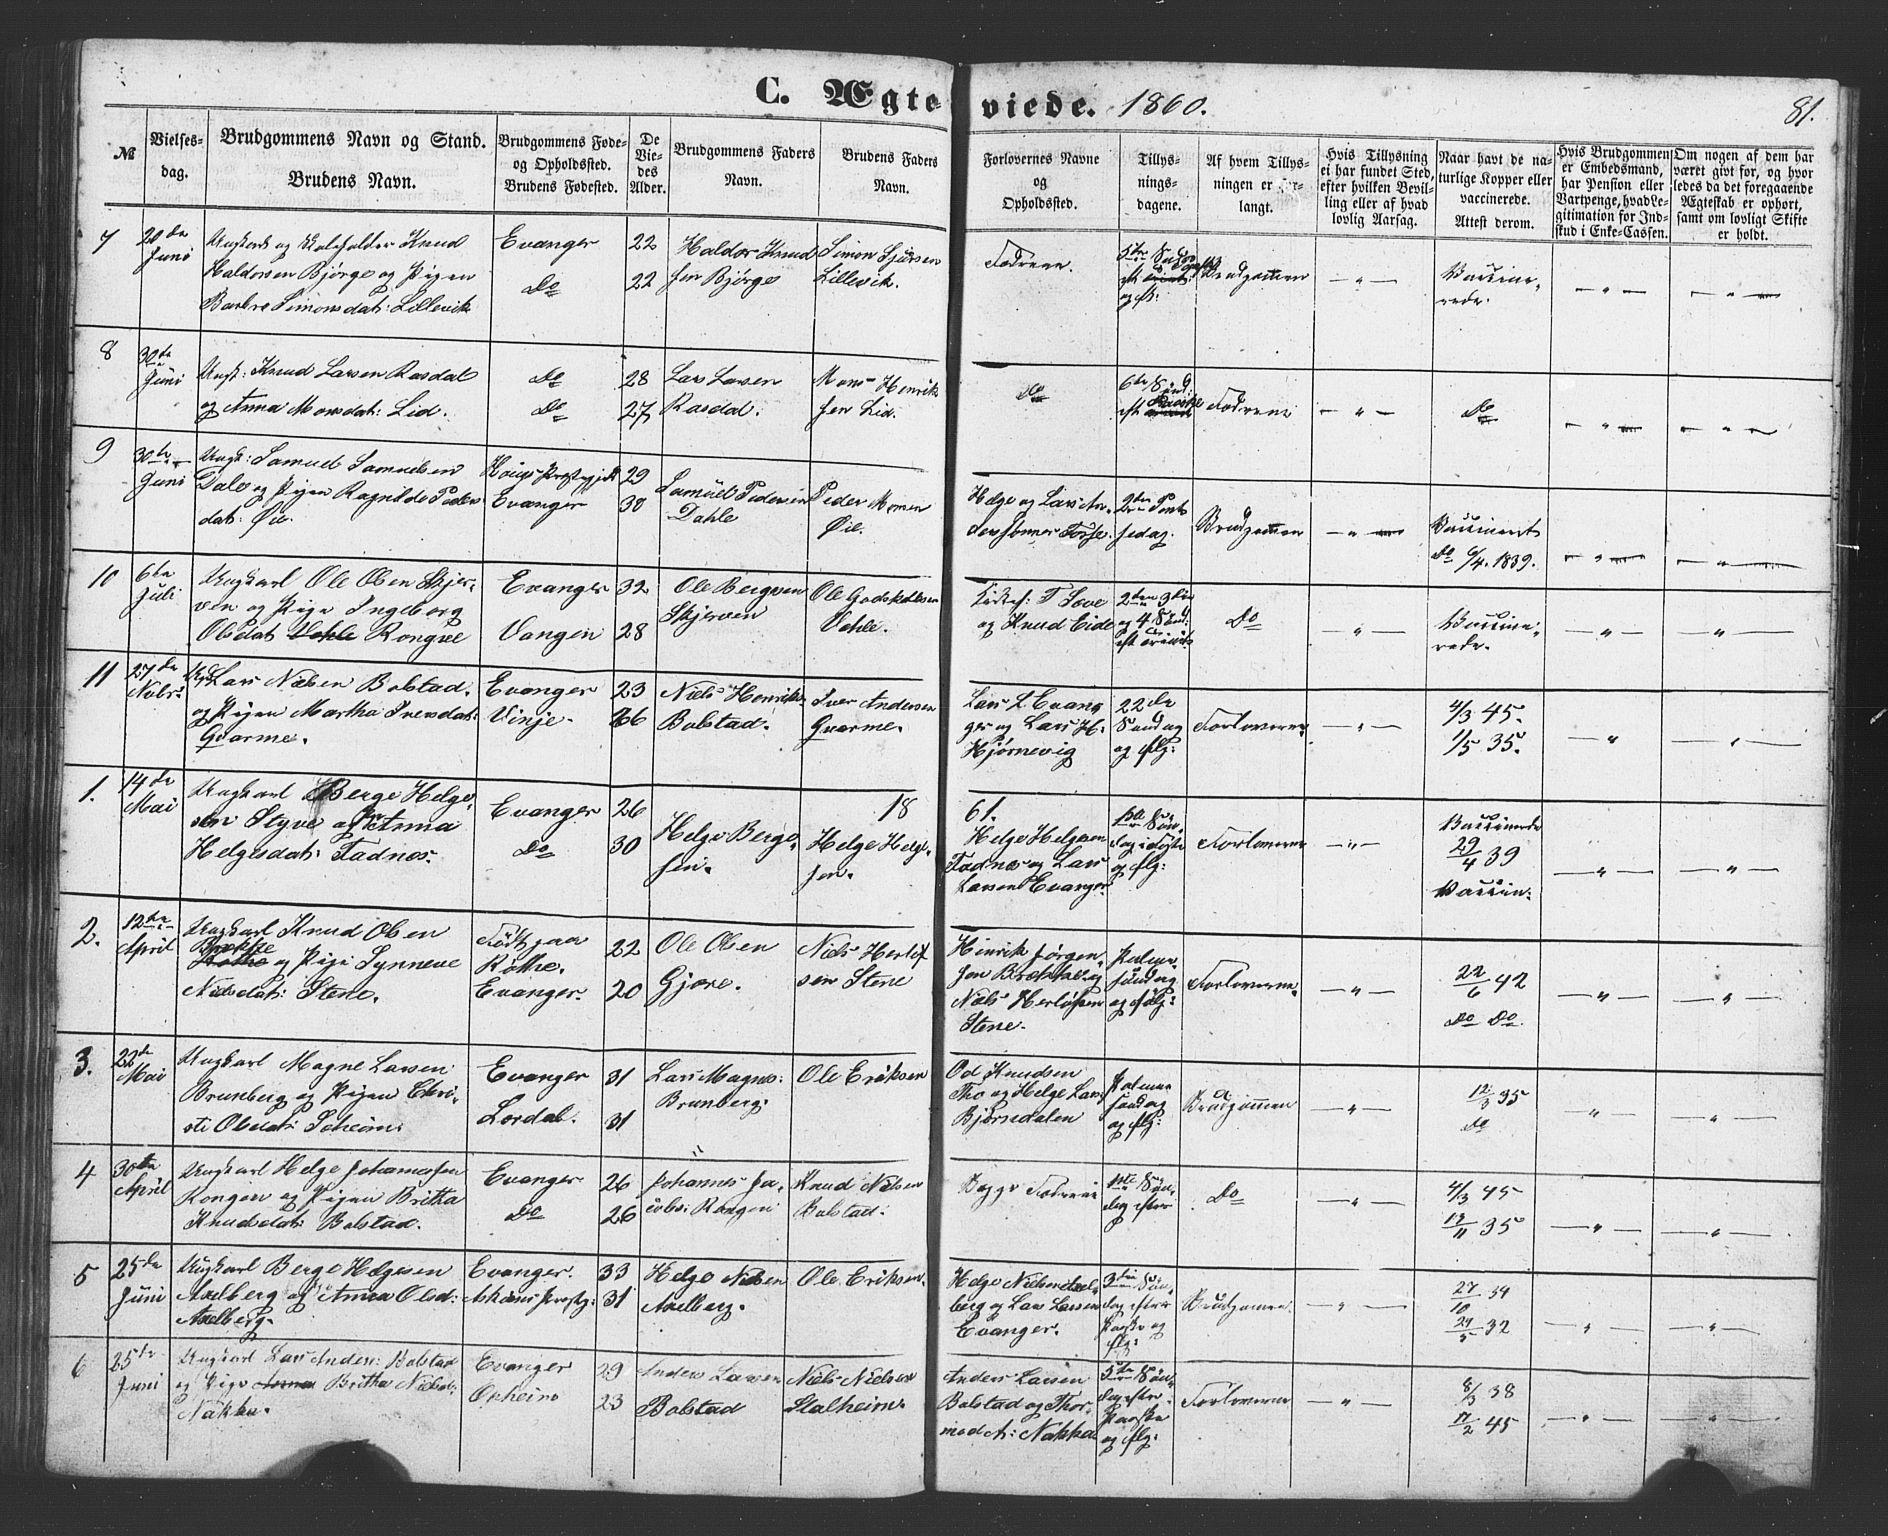 C. Ægteviede. 1860.
81.
№
Vielsesdag.
Brudgommens Navn og Stand.
Brudens Navn.
Brudgommens Føde- og Opholdssted.
Brudens Fødested.
De Viedes Alder.
Brudgommens Faders Navn.
Brudens Faders Navn.
Forlovernes Navne og Opholdssted.
Tillysningsdagene.
Af hvem Tillysningen er forlangt.
Hvis Tillysning ei har fundet Sted, efter hvilken Bevilling eller af hvad lovlig Aarsag.
Naar havt de naturlige Kopper eller vaccinerede. Attest derom.
Hvis Brudgommen er Embedsmand, har Pension eller Vartpenge, hvad Legitimation for Indskud i Enke-Cassen.
Om nogen af dem har været givt før, og hvorledes da det foregaaende Ægteskab er ophørt, samt om lovligt Skifte er holdt.
7
Juni
Ungkarl og Knud
Haldorsen Bjørge og Pigen
Barbro Simonsdat: Lillevik
Evanger
Do
22
22
Haldor Knudsen Bjørge
Simon Sjursen Lillevik.
Fædrene.
Brudgommen
Vaccinerede.
8
30te Juni
Ungk: Knud Larsen Rasdal
og Anna Monsdat: Lid.
Do
Do
28
27
Lars Larsen Rasdal.
Mons Henriksen Lid.
Do
6te Sønd:
Fædrene
Do
9
30te Juni
Ungk: Samuel Samuelsen
Dale og Pigen Ragnilde Pedersdat: Øie.
Evanger
29
30
Samuel Pedersen Dahle
Peder Monsen Øie.
Helge og Lars Andersønner Fosse.
Brudgommen
Vaccineret
Do 6/4. 1839.
10
6te Juli
Ungkarl Ole Olsen Skjerven og Pige Ingeborg
Olsdat Rongve
Evanger
Vangen
32
28
Ole Bergven Skjerven
Ole Godskalksen Dahle.
og Knud Eide
2den 3die og 4 Sønd.
Do
Vaccinerede.
11
27de Nvbr:
Lars Nilsen Bolstad.
og Pigen Martha Iversdat:
Gvarme.
Evanger
Vinje.
23
26
Niels Henriks: Bolstad.
Iver Andersen Gvarme.
Lars L Evanger og Lars H. Hjørnevig
22de Søndag og flg:
Forloverne
4/3 45.
1/5 35.
1861.
1.
14de Mai
Ungkarl Berge Helgesen Styve og Anna
Helgesdat: Fadnes.
Evanger
Do
26
30
Helge Bergesen.
Helge Helgesen.
Helge Helgesen
Fadnes og Lars
Larsen Evanger.
Forloverne
Vaccinerede
29/4 39
Vaccin:
2.
12te April
Ungkarl Knud Olsen
Brække og Pige Synneve
Nielsdat: Stene.
Født paa Røthe.
Evanger.
22
20
Ole Olsen Gjøre.
Niels Herlofsen Stene
Hinrik Jørgensen Brække og
Niels Herlofsen
Stene.
Palmesøndag og følg:
Forloverne.
22/6 42
Do Do.
3.
22de Mai
Ungkarl Magne Larsen
Brunberg og Pigen Christi Olsdat: Soheim.
Evanger
Lordal.
31
31
Lars Magnes: Brunberg.
Ole Eriksen
Od Knudsen
Tho og Helge Lars:
Bjørndalen
Palmesøndag og flg:
Brudgommen
12/3 35
Do
4
30te April
Ungkarl Helge Johannessen
Rongen og Pigen Britha
Knudsdat: Bolstad.
Evanger
Do
26
26
Johannes Jacobs: Rongen
Knud Nielsen Bolstad.
Begge Fædrene
Do
4/3 45
13/11 35
5
25de Juni
Ungkarl Berge Helgesen
Axelberg og Anna Olsd:
Axelberg.
Evanger.
33
31
Helge Nielsen Axelberg.
Ole Eriksen.
Helge Nielsen Axelberg og Lars Larsen
Evanger.
3die Søndag efter Paaske og flg:
Brudgommen.
27/10 34
24/5 32
6
25te Juni
Ungkarl Lars Anders: Bolstad
og Pige Britha Nielsd:
Nakka.
Evanger
Opheim
29
23
Anders Larsen Bolstad
Niels Nielsen Stalheim.
Anders Larsen
Bolstad og Thormod A: Nakka
5te Søndag efter Paaske og flg:
Forloverne
8/3 38
17/2 45